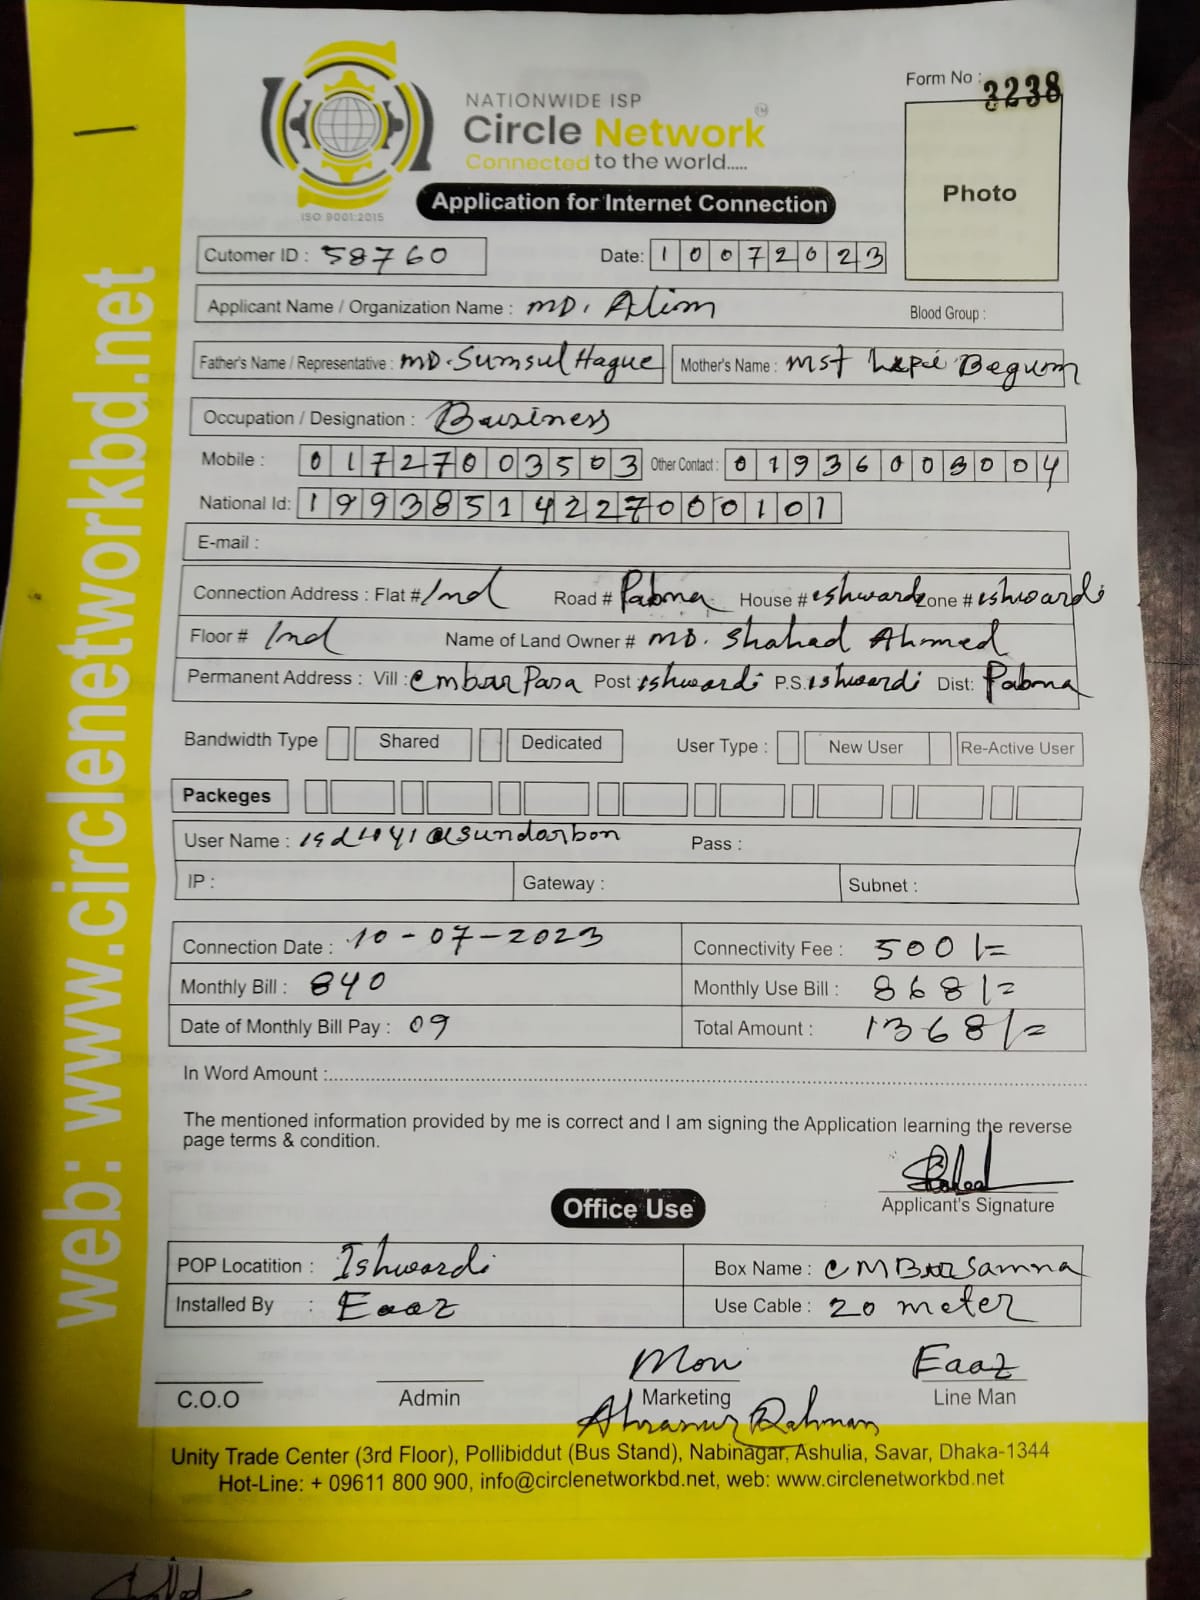 Form No : 3238
NATIONWIDE ISP
Circle Network TM
Connected to the world.....
ISO 9001:2015
Application for Internet Connection
Photo
Cutomer ID : 58760 Date: 10072023
Applicant Name / Organization Name : MD. Alim Blood Group :
Father's Name / Representative : MD. Sumsul Haque Mother's Name : MST Begum
Occupation / Designation : Business
Mobile : 01727003503 Other Contact : 01936008004
National Id: 19938514227000101
E-mail :
Connection Address : Flat # Ind Road # Pabna House # eshwardi Zone # ishwardi
Floor # Ind Name of Land Owner # MD. Shahad Ahmed
Permanent Address : Vill : embar Para Post ishwardi P.S. ishwardi Dist: Pabna
Bandwidth Type Shared Dedicated User Type : New User Re-Active User
Packeges
User Name : Pass :
IP : Gateway : Subnet :
Connection Date : 10-07-2023 Connectivity Fee : 500/=
Monthly Bill : 840 Monthly Use Bill : 868/=
Date of Monthly Bill Pay : 09 Total Amount : 1368/=
In Word Amount :
The mentioned information provided by me is correct and I am signing the Application learning the reverse
page terms & condition.
Applicant's Signature
Office Use
POP Locatition : Ishwardi Box Name :
Installed By : Eaaz Use Cable : 20 meter
Mon Eaaz
C.O.O Admin Marketing Line Man
Rahman
Unity Trade Center (3rd Floor), Pollibiddut (Bus Stand), Nabinagar, Ashulia, Savar, Dhaka-1344
Hot-Line: + 09611 800 900, info@circlenetworkbd.net, web: www.circlenetworkbd.net
web: www.circlenetworkbd.net